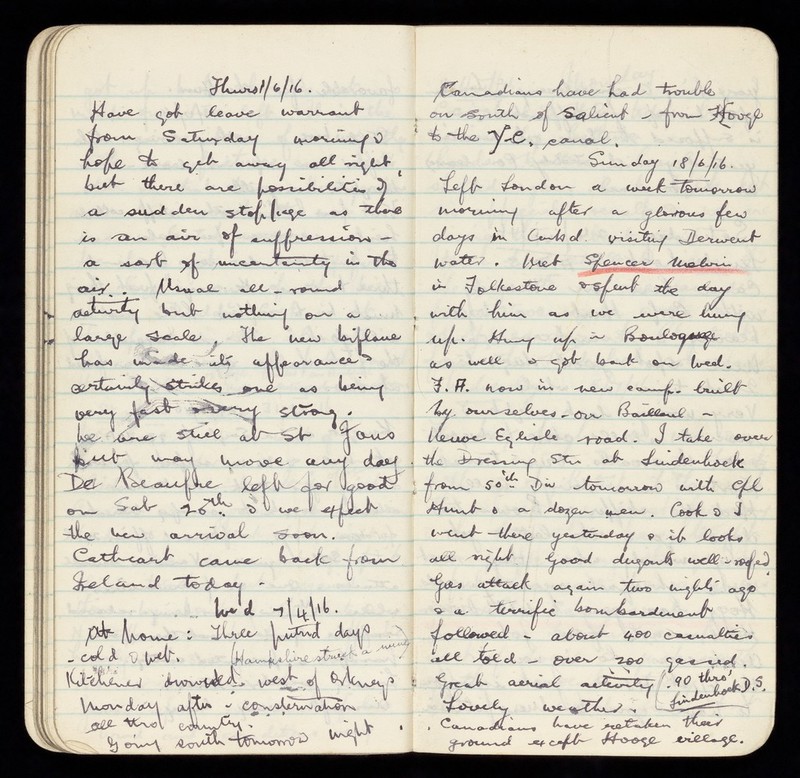 Thurs 1/6/16.
Have got leave warrant
from Saturday morning &
hope to get away all right,
but there are possibilities of
a sudden stoppage as there
is an air of suppression –
a sort of uncertainty in the
air. Usual all-round
activity but nothing on a
large scale. The new biplane
has made its appearance &
certainly strikes one as being
very fast & very strong.
We are still at St Jans
but may move any day.
De Beaupre left for good
on Sat 20th & we expect
the new arrival soon.
Cathcart came back from
Ireland today –
Wed 7/4/16.
At home: Three putrid days
– cold & wet. (Hampshire struck a mine)
Kitchener drowned west of Orkneys
Monday after: consternation
all thro county.
Going south tomorrow night.
Canadians have had trouble
on South of Salient – from Hooge
to the Y.C. canal.
Sunday 18/6/16.
Left London a week tomorrow
morning after a glorious few
days in Cumbd. visiting Derwent
water. Met Spencer Melvin
in Folkestone & spent the day
with him as we were hung
up. Hung up in Boulogne
as well & got back on Wed.
F.A. now in new camp built
by ourselves – on Bailleul –
Neuve Eglise road. I take over
the Dressing Stn at Lindenhoek
from 50th Div tomorrow with Cpl
Hunt & a dozen men. Cook & I
went there yesterday & it looks
all right Good dugouts well-roofed.
Gas attack again two nights ago
& a terrific bombardment
followed – about 400 casualties
all told – over 200 gassed.
Great aerial activity. 90 thro'
Lindenhoek D.S.
Lovely weather.
Canadians have retaken their
ground except Hooge village.